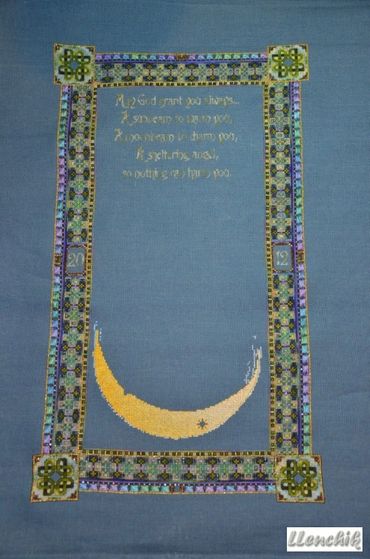 May God grant you always...
A sunbeam to warm you,
A moonbeam to charm you,
A sheltering angel,
so nothing can harm you.
20 12
LLenchik